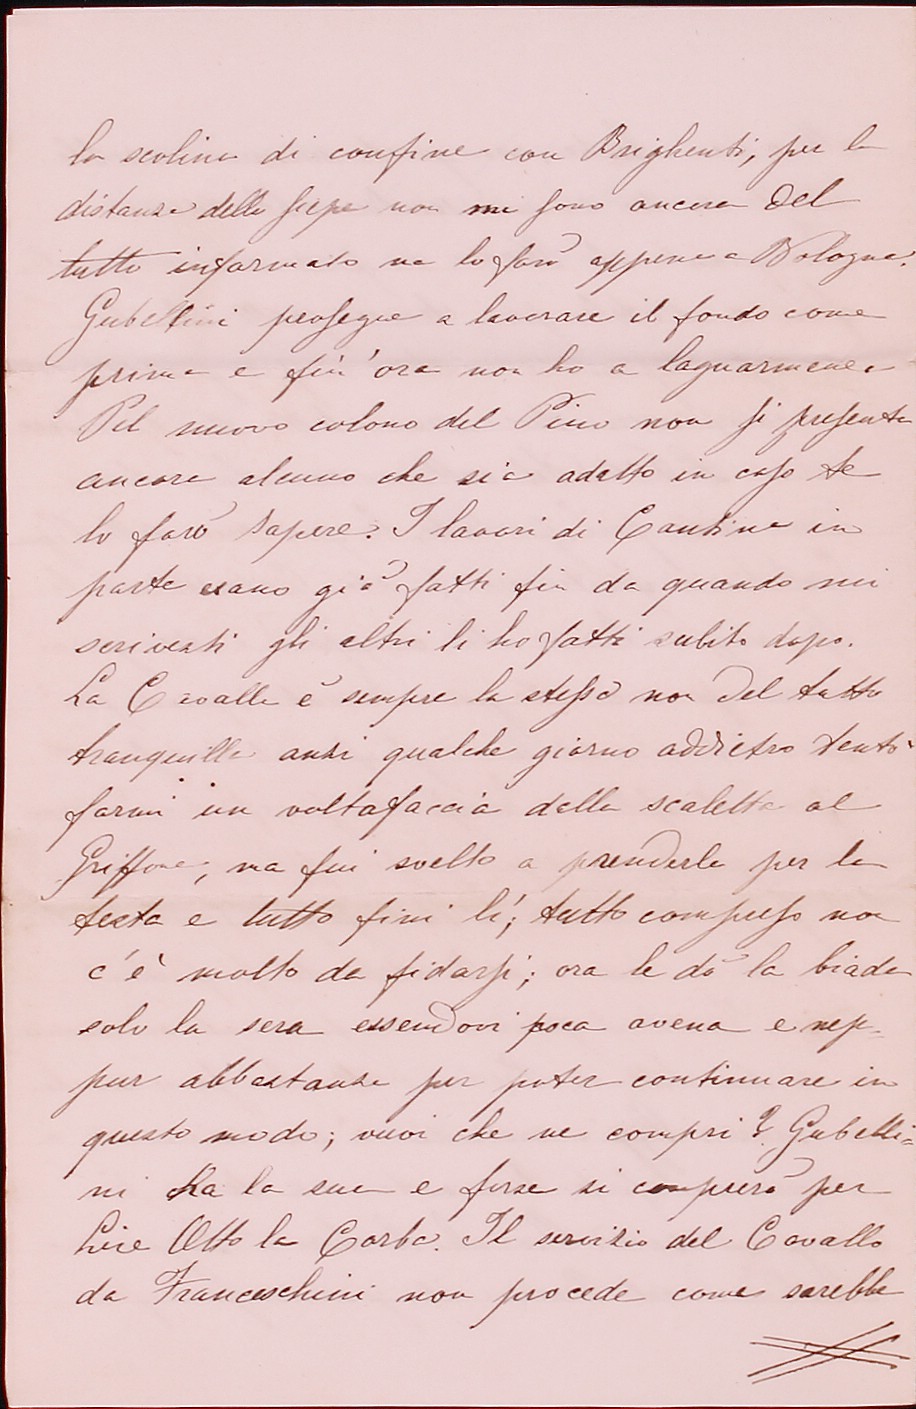 la scolina di confine con Brighenti, per la
distanza della siepe non mi sono ancora del
tutto informato ma lo farò appena a Bologna.
Gubellini prosegue a lavorare il fondo come
prima e fin'ora non ho a lagnarmene.
Pel nuovo colono del Pino non si presenta
ancora alcuno che sia adatto in caso te
lo farò sapere. I lavori di Cantina in
parte erano già fatti fin da quando mi
scrivesti gli altri li ho fatti subito dopo.
La Cavalla è sempre la stessa non del tutto
tranquilla anzi qualche giorno addietro tentò
farmi un voltafaccia dalla scaletta al
Griffone, ma fui svelto a prenderla per la
testa e tutto finì lì; tutto compreso non
c'è molto da fidarsi; ora le dò la biada
solo la sera essendovi poca avena e nep-
pur abbastanza per poter continuare in
questo modo; vuoi che ne compri? Gubelli=
ni ha la sua e forse si comprerà per
Lire Otto la Corba. Il servizio del Cavallo
da Franceschini non procede come sarebbe